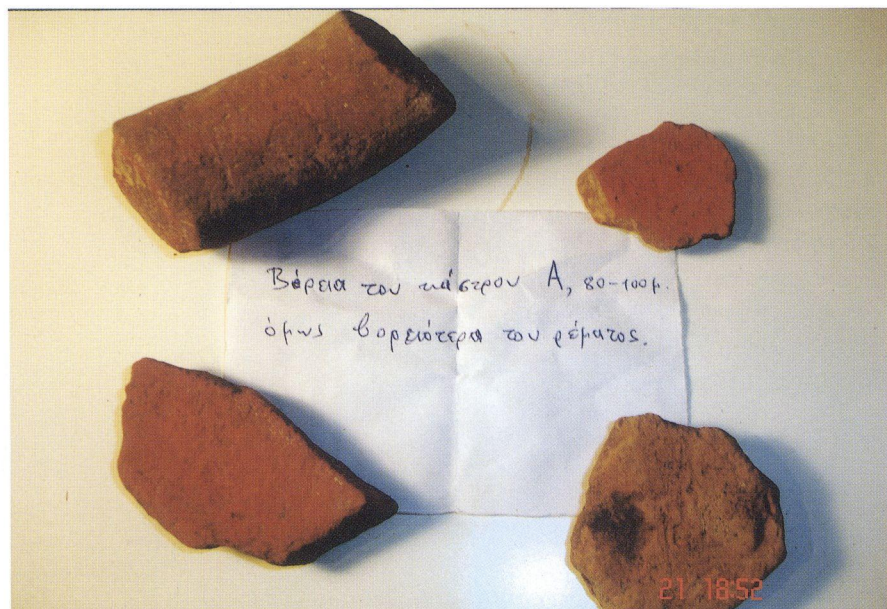 Βόρεια του κάστρου Α, 80-100μ.
όμως βορειότερα του ρέματος.
21 18:52